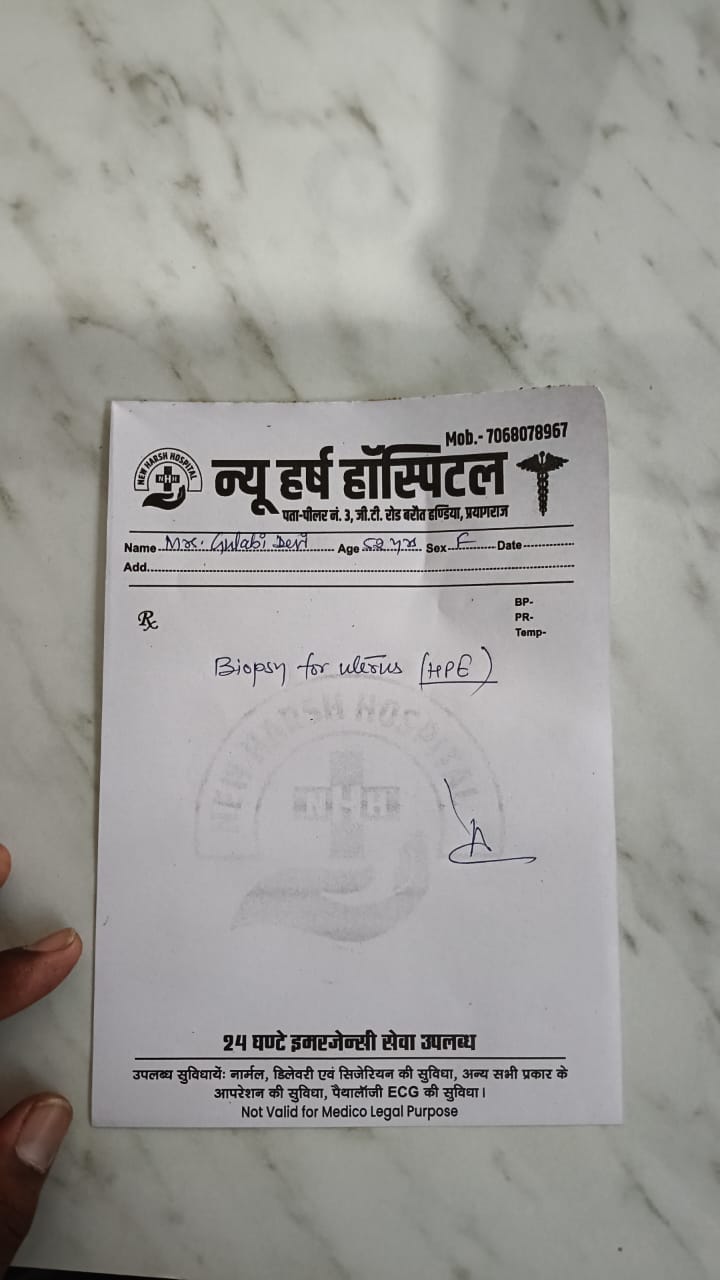 Mob.- 7068078967
NEW HARSH HOSPITAL
NHH
न्यू हर्ष हॉस्पिटल
पता-पीलर नं. 3, जी.टी. रोड बरौत हण्डिया, प्रयागराज
Name Mrs. Gulabi Devi Age 52 yrs Sex F Date
Add.
Rx
BP-
PR-
Temp-
Biopsy for uterus (HPE)
NEW HARSH HOSPITAL
NHH
24 घण्टे इमरजेन्सी सेवा उपलब्ध
उपलब्ध सुविधायेंः नार्मल, डिलेवरी एवं सिजेरियन की सुविधा, अन्य सभी प्रकार के
आपरेशन की सुविधा, पैथालॉजी ECG की सुविधा।
Not Valid for Medico Legal Purpose